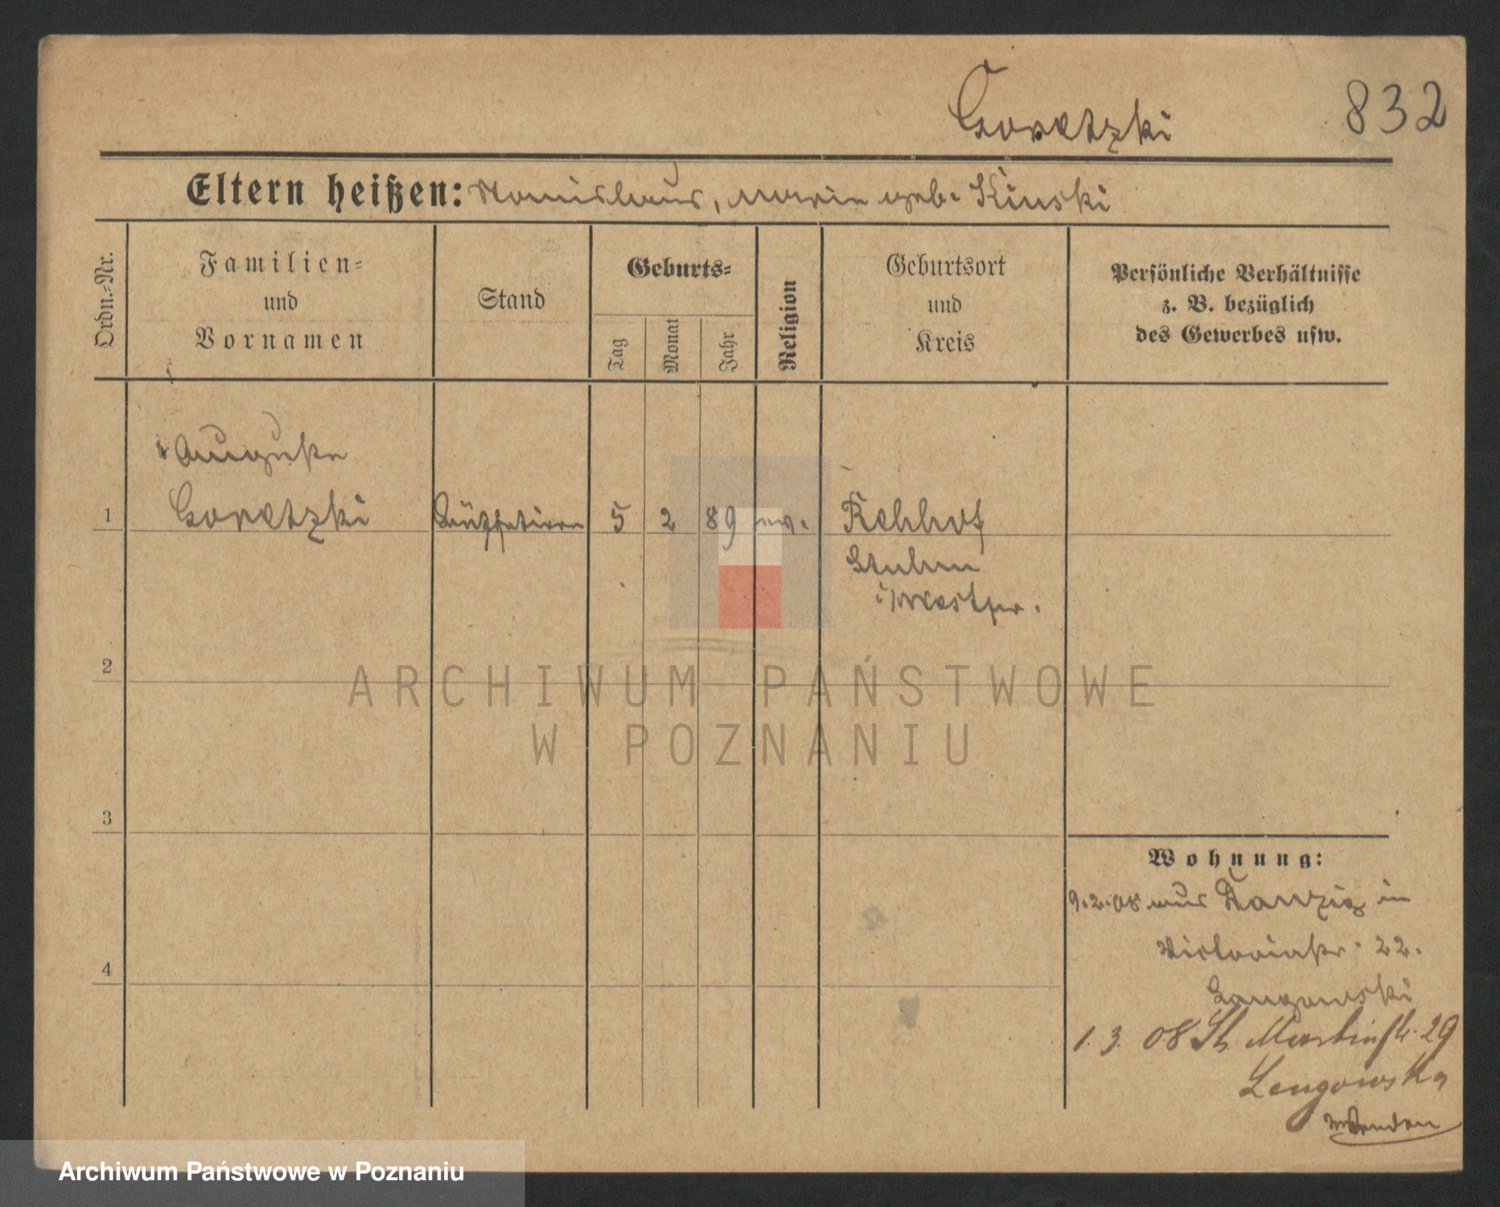 Goretzki 832
Eltern heißen: Stanislaus, Marie geb. Kinski
Ordn.-Nr.
Familien-
und
Vornamen
Stand
Geburts-
Tag
Monat
Jahr
Religion
Geburtsort
und
Kreis
Persönliche Verhältnisse
z. B. bezüglich
des Gewerbes usw.
Auguste
1 Goretzki 5 2 89 ev. Rehhof
Stuhm
i/Westpr.
2
3
4
Wohnung:
9.2.08 aus Danzig in
Victoriastr. 22.
Langowski
1.3. 08 St. Martinstr. 29
Lengowska
Wenden
ARCHIWUM PAŃSTWOWE
W POZNANIU
Archiwum Państwowe w Poznaniu